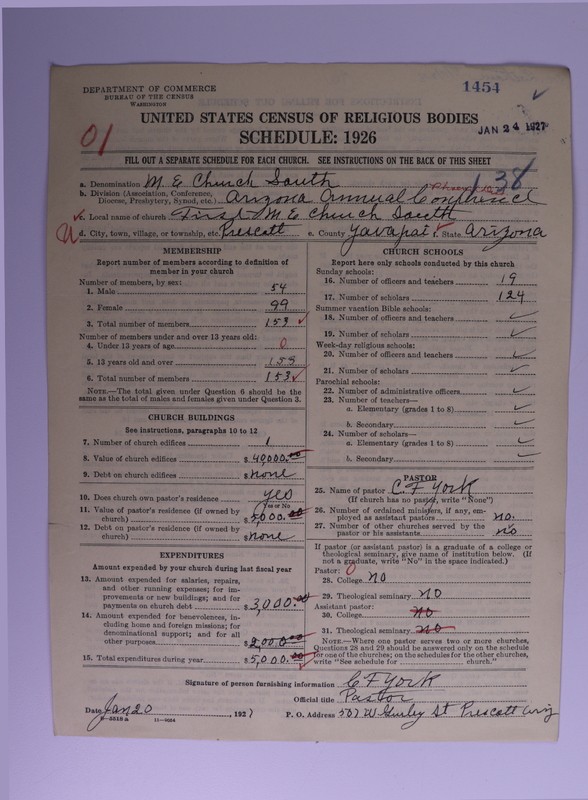 DEPARTMENT OF COMMERCE
BUREAU OF THE CENSUS
WASHINGTON
1454
UNITED STATES CENSUS OF RELIGIOUS BODIES
JAN 24 1927
SCHEDULE: 1926
01
FILL OUT A SEPARATE SCHEDULE FOR EACH CHURCH. SEE INSTRUCTIONS ON THE BACK OF THIS SHEET
138
a. Denomination M E Church South
b. Division (Association, Conference, Diocese, Presbytery, Synod, etc.) Arizona Annual Conference
c. Local name of church First M E Church South
d. City, town, village, or township, etc. Prescott e. County Yavapai f. State Arizona
MEMBERSHIP
Report number of members according to definition of member in your church
Number of members, by sex:
1. Male 54
2. Female 99
3. Total number of members 153
Number of members under and over 13 years old:
4. Under 13 years of age 0
5. 13 years old and over 153
6. Total number of members 153
NOTE.—The total given under Question 6 should be the same as the total of males and females given under Question 3.
CHURCH BUILDINGS
See instructions, paragraphs 10 to 12
7. Number of church edifices 1
8. Value of church edifices $ 40,000.00
9. Debt on church edifices $ none
10. Does church own pastor's residence yes
Yes or No
11. Value of pastor's residence (if owned by church) $ 5,000.00
12. Debt on pastor's residence (if owned by church) $ none
EXPENDITURES
Amount expended by your church during last fiscal year
13. Amount expended for salaries, repairs, and other running expenses; for improvements or new buildings; and for payments on church debt $ 3,000.00
14. Amount expended for benevolences, including home and foreign missions; for denominational support; and for all other purposes $ 2,000.00
15. Total expenditures during year $ 5,000.00
CHURCH SCHOOLS
Report here only schools conducted by this church
Sunday schools:
16. Number of officers and teachers 19
17. Number of scholars 124
Summer vacation Bible schools:
18. Number of officers and teachers
19. Number of scholars
Week-day religious schools:
20. Number of officers and teachers
21. Number of scholars
Parochial schools:
22. Number of administrative officers
23. Number of teachers—
a. Elementary (grades 1 to 8)
b. Secondary
24. Number of scholars—
a. Elementary (grades 1 to 8)
b. Secondary
PASTOR
25. Name of pastor C. F York
(If church has no pastor, write "None")
26. Number of ordained ministers, if any, employed as assistant pastors no.
27. Number of other churches served by the pastor or his assistants no
If pastor (or assistant pastor) is a graduate of a college or theological seminary, give name of institution below. (If not a graduate, write "No" in the space indicated.)
Pastor: 0
28. College no
29. Theological seminary no
Assistant pastor:
30. College no
31. Theological seminary no
NOTE.—Where one pastor serves two or more churches, Questions 28 and 29 should be answered only on the schedule for one of the churches; on the schedules for the other churches, write "See schedule for church."
Signature of person furnishing information C F York
Official title Pastor
Date Jan 20, 1927 P. O. Address 507 W Gurley St Prescott Ariz